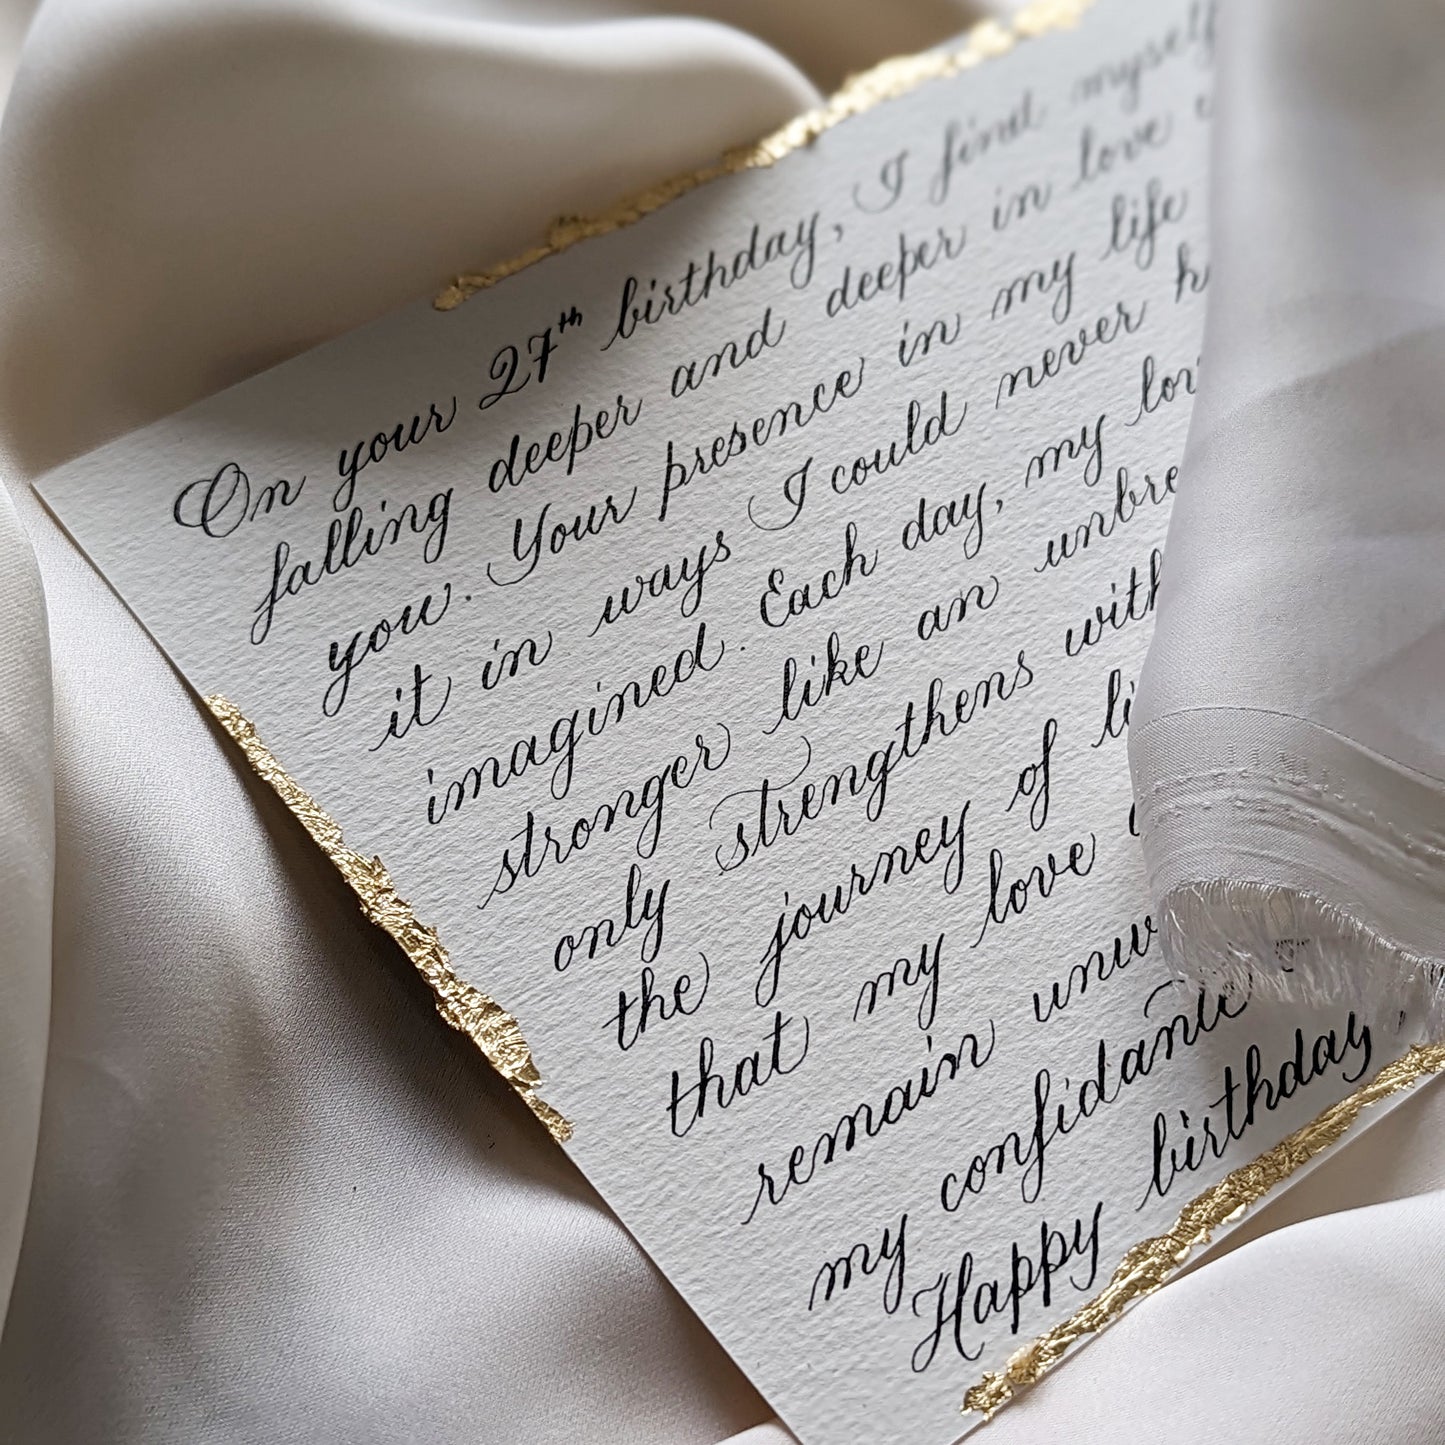 On your 27th birthday, I find myself
falling deeper and deeper in love
you. Your presence in my life
it in ways I could never
imagined. Each day, my
stronger like an
only strengthens with
the journey of
that my love
remain
my confidante
Happy birthday